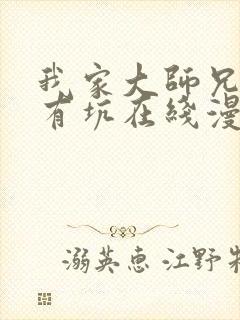 我家大師兄
有坑在綫漫
溺英惠 江野牧